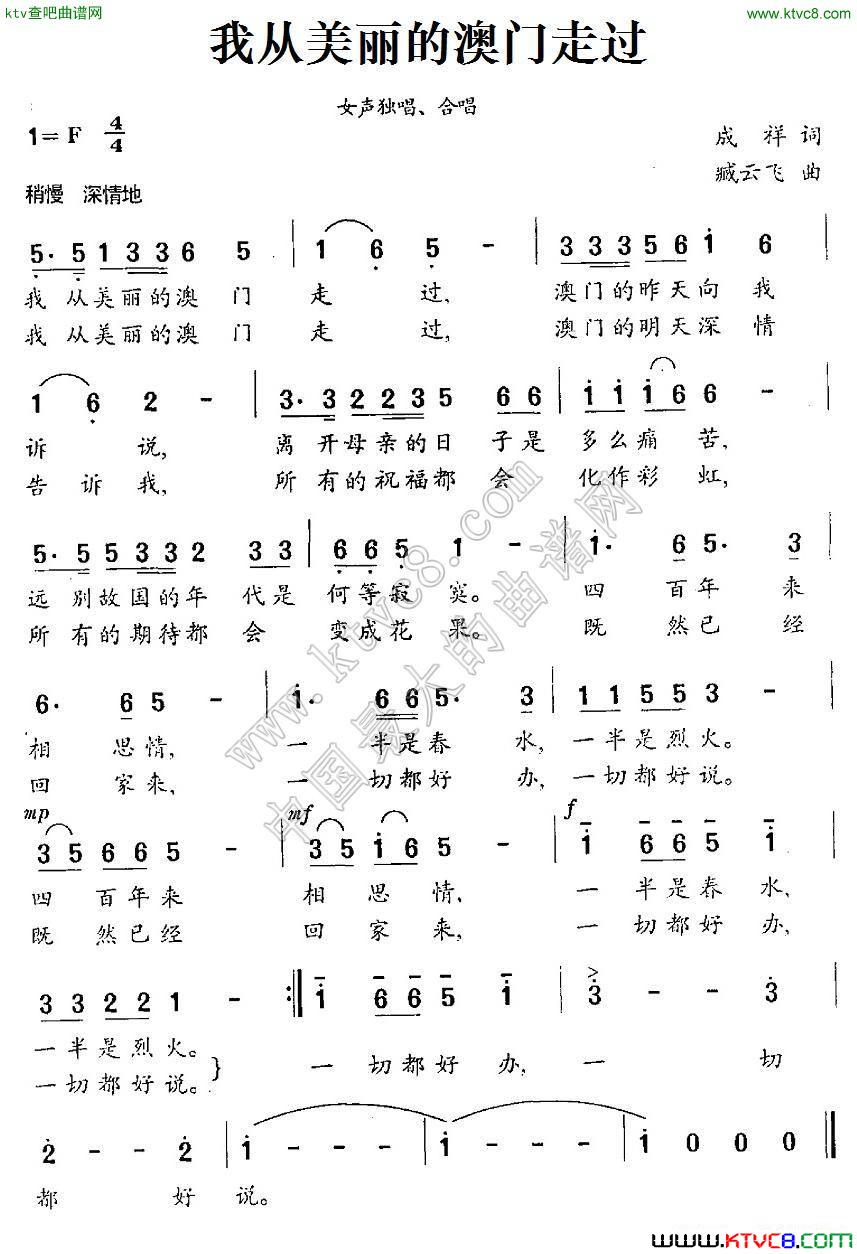 ktv查吧曲谱网
www.ktvc8.com
我从美丽的澳门走过
女声独唱、合唱
1=F 4/4
成 祥 词
臧云飞 曲
稍慢 深情地
5· 5 1 3 3 6 5 | 1 6 5 - | 3 3 3 5 6 1 6 |
我 从美丽的澳 门 走 过, 澳门的昨天向 我
我 从美丽的澳 门 走 过, 澳门的明天深 情
1 6 2 - | 3· 3 2 2 3 5 6 6 | 1 1 1 6 6 - |
诉 说, 离 开母亲的日 子是 多么痛 苦,
告 诉 我, 所 有的祝福都 会 化作彩 虹,
5· 5 5 3 3 2 3 3 | 6 6 5 1 - | 1· 6 5· 3 |
远 别故国的年 代是 何等寂 寞。 四 百年 来
所 有的期待都 会 变成花 果。 既 然已 经
6· 6 5 - | 1· 6 6 5· 3 | 1 1 5 5 3 - |
相 思情, 一 半是春 水, 一半是烈火。
回 家来, 一 切都好 办, 一切都好说。
mp mf f
3 5 6 6 5 - | 3 5 1 6 5 - | 1 6 6 5 1 |
四 百年来 相 思 情, 一 半是春 水,
既 然已经 回 家 来, 一 切都好 办,
3 3 2 2 1 - :| 1 6 6 5 1 | 3 - - 3 |
一半是烈火。
一切都好说。 } 一 切都好 办, 一 切
2 - - 2 | 1 - - - | 1 - - - | 1 0 0 0 ||
都 好 说。
www.ktvc8.com
中国最大的曲谱网
www.KTVC8.com